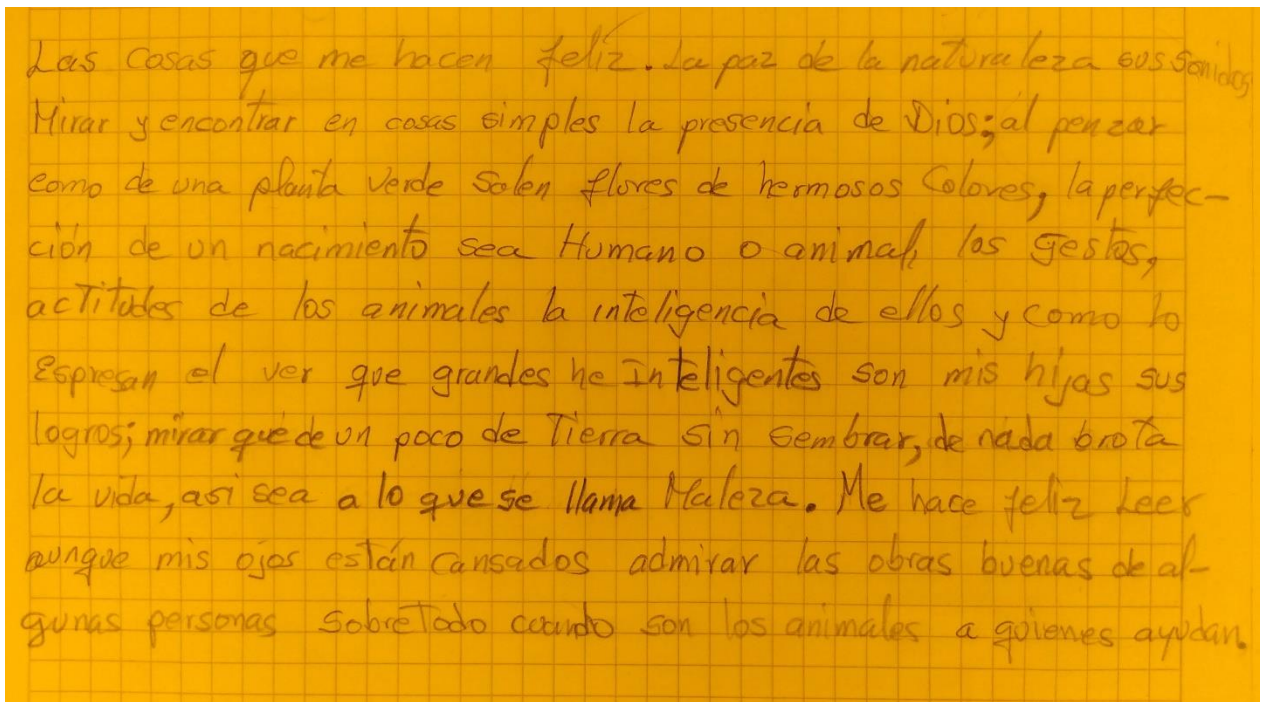 Las Cosas que me hacen feliz. La paz de la naturaleza sus sonidos
Mirar y encontrar en cosas simples la presencia de Dios; al penzar
como de una planta verde salen flores de hermosos Colores, la perfec-
ción de un nacimiento sea Humano o animal, los gestos,
actitudes de los animales la inteligencia de ellos y como lo
espresan el ver que grandes he Inteligentes son mis hijas sus
logros; mirar que de un poco de Tierra sin sembrar, de nada brota
la vida, asi sea a lo que se llama Maleza. Me hace feliz Leer
aunque mis ojos están cansados admirar las obras buenas de al-
gunas personas sobre Todo cuando son los animales a quienes ayudan.